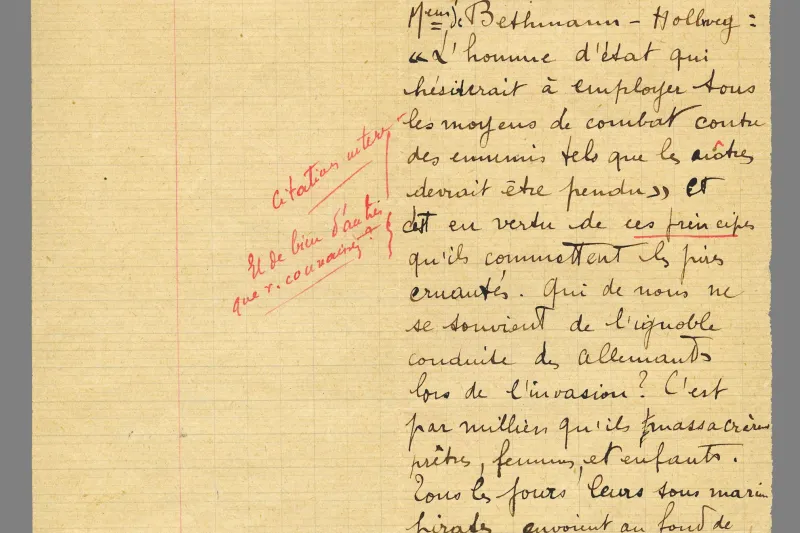 Mr de Bethmann-Hollweg :
« L'homme d'état qui
hésiterait à employer tous
les moyens de combat contre
des ennemis tels que les nôtres
devrait être pendu » et
c'est en vertu de ces principes
qu'ils commettent les pires
cruautés. Qui de nous ne
se souvient de l'ignoble
conduite des allemants
lors de l'invasion ? C'est
par milliers qu'ils massacrèrent
prêtres, femmes, et enfants.
Tous les jours leurs sous marins
pirates envoient au fond de
Citation
Et de bien d'autres
que v. connaissez ?